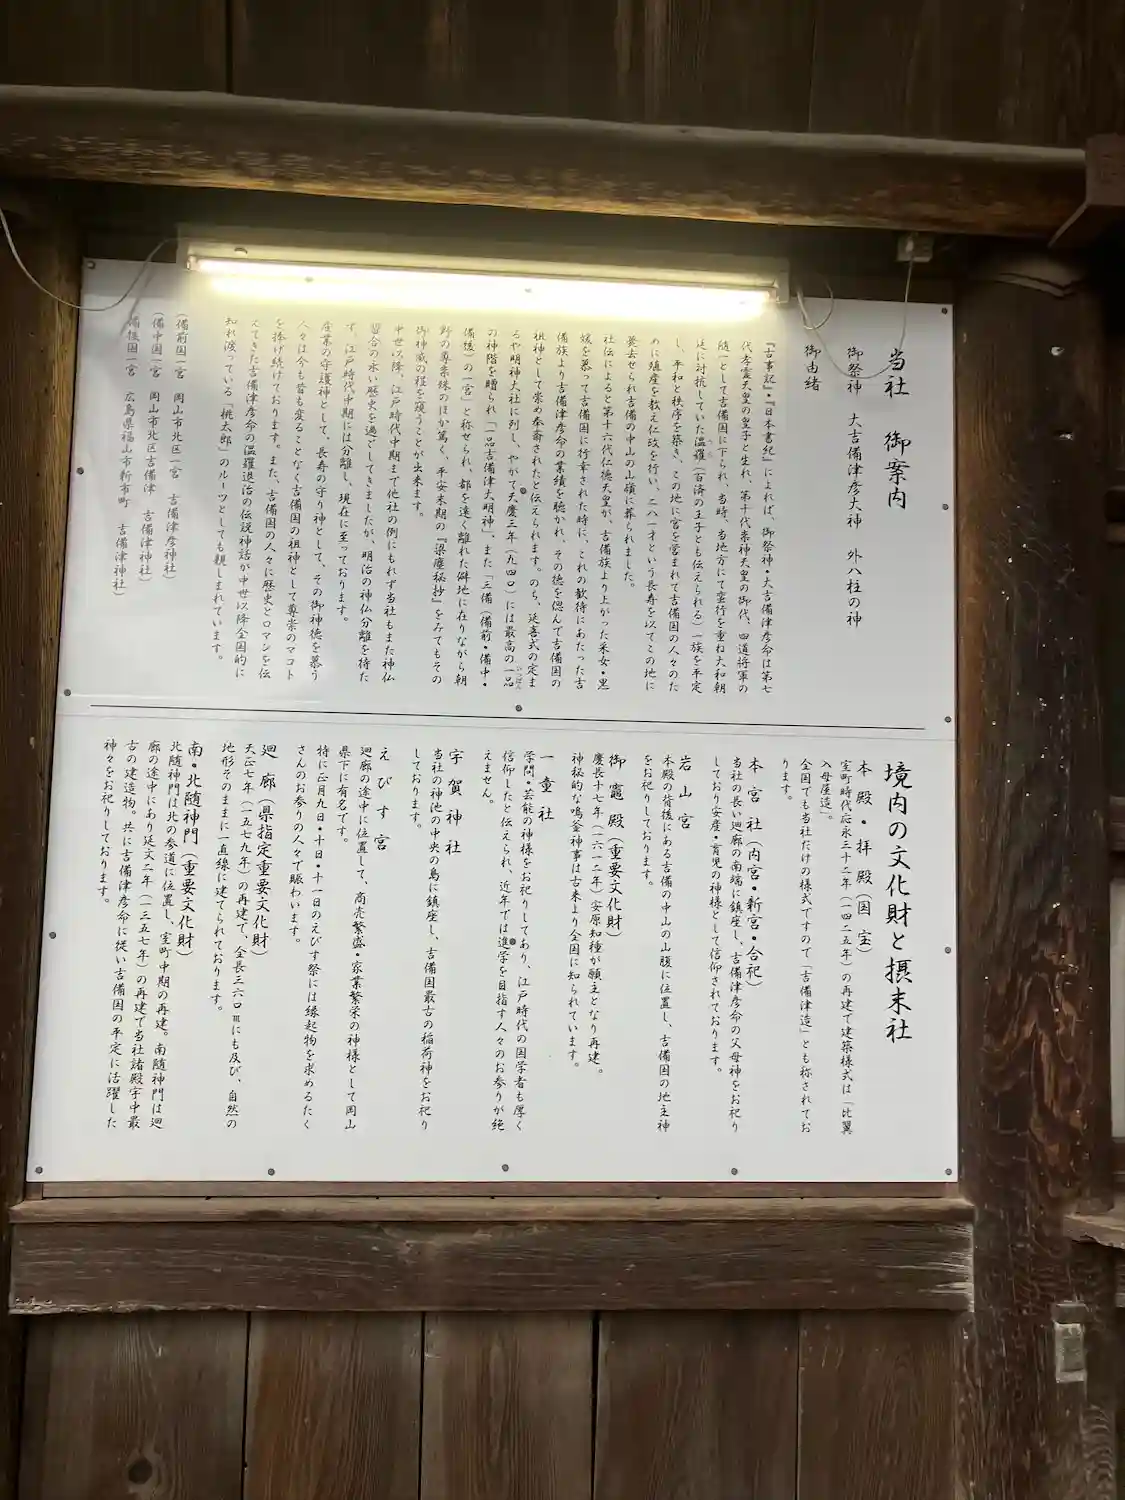 当社 御案内
御祭神 大吉備津彦大神 外八柱の神
御由緒
『古事記』・『日本書紀』によれば、御祭神・大吉備津彦命は第七
代孝霊天皇の皇子と生れ、第十代崇神天皇の御代、四道将軍の
随一として吉備国に下られ、当時、当地方にて蛮行を重ね大和朝
廷に対抗していた温羅(百済の王子とも伝えられる)一族を平定
し、平和と秩序を築き、この地に宮を営まれて吉備国の人々のた
めに殖産を教え仁政を行い、二八一才という長寿を以てこの地に
薨去せられ吉備の中山の山嶺に葬られました。
社伝によると第十六代仁徳天皇が、吉備族より上がった采女・黒
媛を慕って吉備国に行幸された時に、これの歓待にあたった吉
備族より吉備津彦命の業績を聴かれ、その徳を偲んで吉備国の
祖神として崇め奉斎されたと伝えられます。のち、延喜式の定ま
るや明神大社に列し、やがて天慶三年(九四〇)には最高の一品
の神階を贈られ「一品吉備津大明神」、また「三備(備前・備中・
備後)の一宮」と称せられ、都を遠く離れた僻地に在りながら朝
野の尊崇殊のほか篤く、平安末期の『梁塵秘抄』をみてもその
御神威の程を窺うことが出来ます。
中世以降、江戸時代中期まで他社の例にもれず当社もまた神仏
習合の永い歴史を過ごしてきましたが、明治の神仏分離を待た
ず、江戸時代中期には分離し、現在に至っております。
産業の守護神として、長寿の守り神として、その御神徳を慕う
人々は今も昔も変ることなく吉備国の祖神として尊崇のマコト
を捧げ続けております。また、吉備国の人々に歴史とロマンを伝
えてきた吉備津彦命の温羅退治の伝説神話が中世以降全国的に
知れ渡っている「桃太郎」のルーツとしても親しまれています。
(備前国一宮 岡山市北区一宮 吉備津彦神社)
(備中国一宮 岡山市北区吉備津 吉備津神社)
(備後国一宮 広島県福山市新市町 吉備津神社)
境内の文化財と摂末社
本殿・拝殿(国宝)
室町時代応永三十二年(一四二五年)の再建で建築様式は「比翼
入母屋造」。
全国でも当社だけの様式ですので「吉備津造」とも称されてお
ります。
本宮社(内宮・新宮・合祀)
当社の長い廻廊の南端に鎮座し、吉備津彦命の父母神をお祀り
しており安産・育児の神様として信仰されております。
岩山宮
本殿の背後にある吉備の中山の山腹に位置し、吉備国の地主神
をお祀りしております。
御竈殿(重要文化財)
慶長十七年(一六一二年)安原知種が願主となり再建。
神秘的な鳴釜神事は古来より全国に知られています。
一童社
学問・芸能の神様をお祀りしてあり、江戸時代の国学者も厚く
信仰したと伝えられ、近年では進学を目指す人々のお参りが絶
えません。
宇賀神社
当社の神池の中央の島に鎮座し、吉備国最古の稲荷神をお祀り
しております。
えびす宮
廻廊の途中に位置して、商売繁盛・家業繁栄の神様として岡山
県下に有名です。
特に正月九日・十日・十一日のえびす祭には縁起物を求めるたく
さんのお参りの人々で賑わいます。
廻廊(県指定重要文化財)
天正七年(一五七九年)の再建で、全長三六〇mにも及び、自然の
地形そのままに一直線に建てられております。
南・北随神門(重要文化財)
北随神門は北の参道に位置し、室町中期の再建。南随神門は廻
廊の途中にあり延文二年(一三五七年)の再建で当社諸殿宇中最
古の建造物。共に吉備津彦命に従い吉備国の平定に活躍した
神々をお祀りしております。